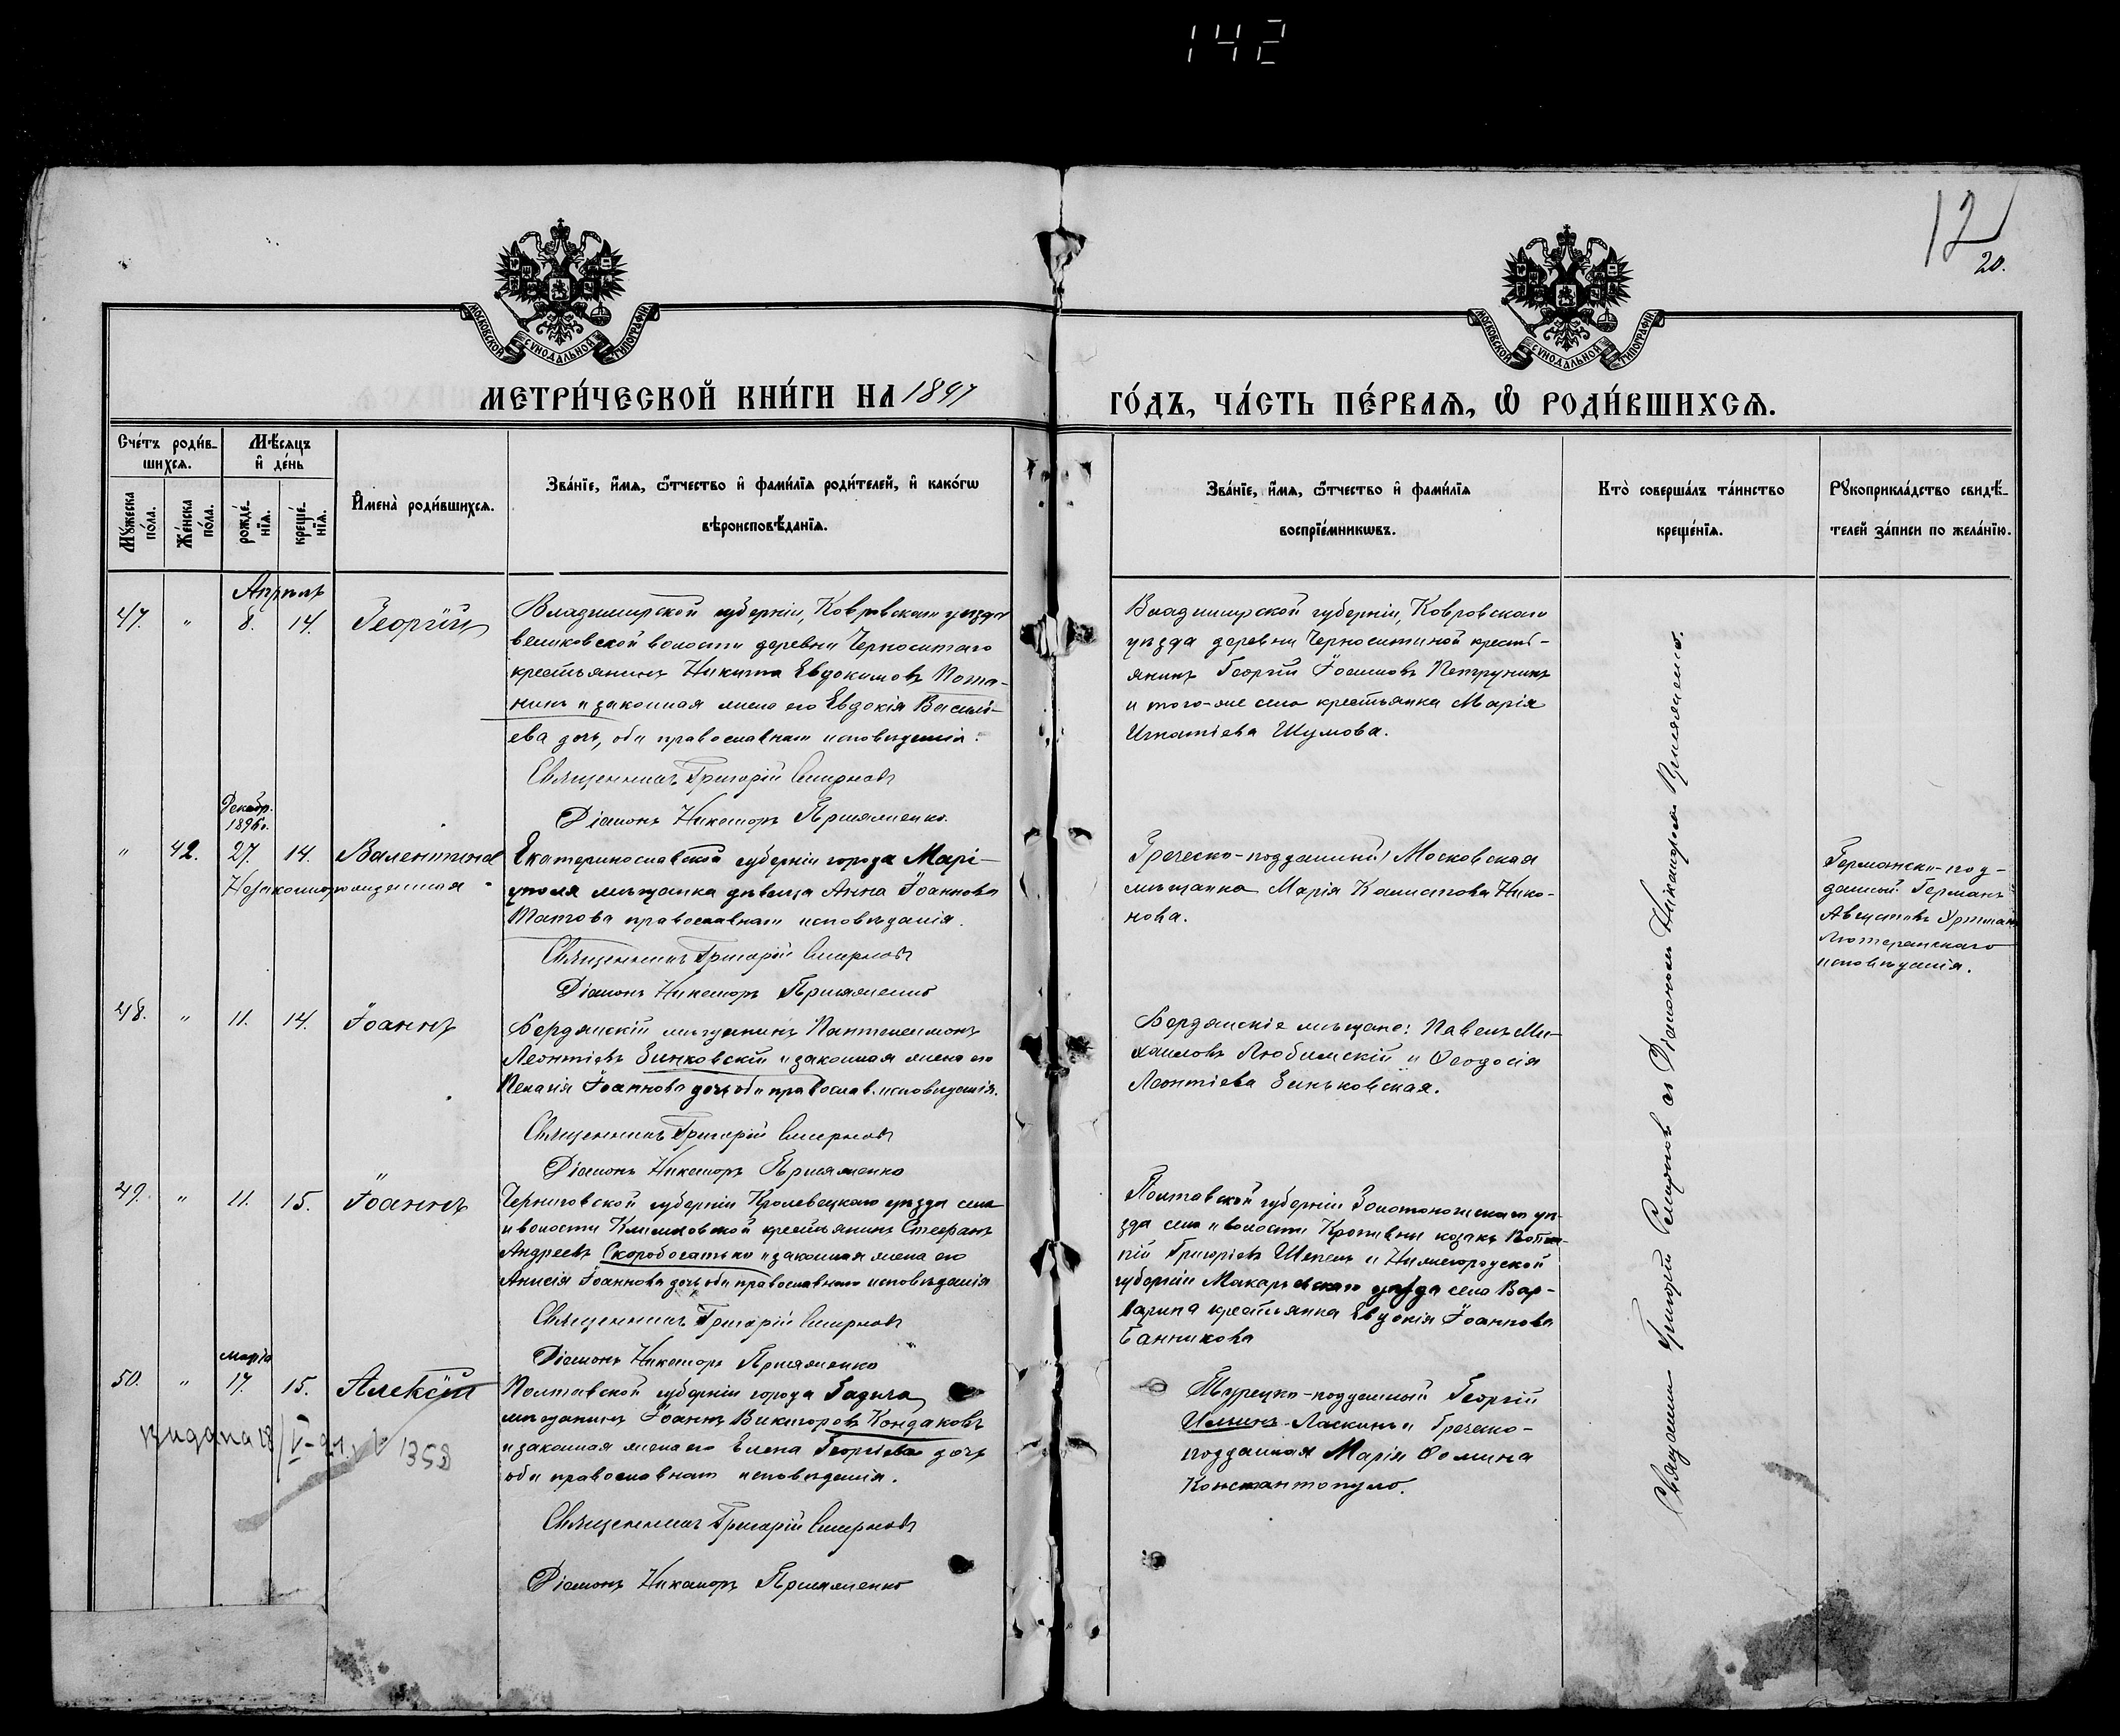 142
12
20.
МОСКОВСКОЙ СѴНОДАЛЬНОЙ ТИПОГРАФІИ
МОСКОВСКОЙ СѴНОДАЛЬНОЙ ТИПОГРАФІИ
МЕТРИ́ЧЕСКОЙ КНИ́ГИ НА 1897
ГО́ДЪ, ЧА́СТЬ ПЕ́РВАѦ, Ѡ РОДИ́ВШИХСѦ.
Сче́тъ роди́в-
шихсѧ.
Мѣ́сѧцъ
и҆ де́нь
Мꙋ́жеска
по́ла.
Же́нска
по́ла.
рожде́-
нїѧ.
креще́-
нїѧ.
И҆мена̀ роди́вшихсѧ.
Зва́нїе, и҆́мѧ, ѻ҆́тчество и҆ фами́лїѧ роди́телей, и҆ како́гѡ
вѣроисповѣ́данїѧ.
Зва́нїе, и҆́мѧ, ѻ҆́тчество и҆ фами́лїѧ
воспрїе́мникѡвъ.
Кто̀ соверша́лъ та́инство
креще́нїѧ.
Рꙋкоприкла́дство свидѣ́-
телей за́писи по жела́нїю.
Апрѣль
47. " 8. 14. Георгій
Владимирской губерніи, Ковровскаго уѣзда
великовской волости деревни Черноситаго
крестьянинъ Никита Евдокимовъ Пота-
нинъ и законная жена его Евдокія Василі-
ева дочь, оба православнаго исповѣданія.
Священникъ Григорій Смирновъ
Діаконъ Никаноръ Пришляменко.
Владимирской губерніи, Ковровскаго
уѣзда деревни Черноситиной кресть-
янинъ Георгій Іоанновъ Петрунинъ
и того-же села крестьянка Марія
Игнатіева Шумова.
Декабр.
1896 г.
" 42. 27. 14. Валентина
Незаконнорожденная
Екатеринославской губерніи города Марі-
уполя мѣщанка дѣвица Анна Іоаннова
Татова православнаго исповѣданія.
Священникъ Григорій Смирновъ
Діаконъ Никаноръ
Греческо-подданный, Московская
мѣщанка Марія Нико-
нова.
Германско-под-
данный Германъ
Августовъ
Лютеранскаго
исповѣданія.
48. " 11. 14. Іоаннъ
Бердянскій мѣщанинъ Пантелеимонъ
Леонтіевъ Зинковскій и законная жена его
Пелагія Іоаннова дочь, оба православ. исповѣданія.
Священникъ Григорій Смирновъ
Діаконъ Никаноръ
Бердянскіе мѣщане: Павелъ Ми-
хаиловъ Любимскій и Ѳеодосія
Леонтіева Зиньковская.
49. " 11. 15. Іоаннъ
Черниговской губерніи Кролевецкаго уѣзда села
и волости Клишковской крестьянинъ Стефанъ
Андреевъ Скоробогатько и законная жена его
Анисія Іоаннова дочь, оба православнаго исповѣданія
Священникъ Григорій Смирновъ
Діаконъ Никаноръ
Полтавской губерніи Золотоношскаго уѣ-
зда села и волости Кропивни козакъ
Григоріевъ Шепель и Нижегородской
губерніи Макарьевскаго уѣзда села Вар-
варина крестьянка Евдокія Іоаннова
Банникова
марта
50. " 17. 15. Алексій
Полтавской губерніи города Гадяча
мѣщанинъ Іоаннъ Викторовъ Кондаковъ
и законная жена его Елена Георгіева дочь
оба православнаго исповѣданія.
Священникъ Григорій Смирновъ
Діаконъ Никаноръ
Турецко-подданный Георгій
Ильинъ Ласкинъ и Греческо-
подданная Марія Ѳомина
Константопуло.
видана 1358
Священникъ Григорій Смирновъ съ Діакономъ Никаноромъ